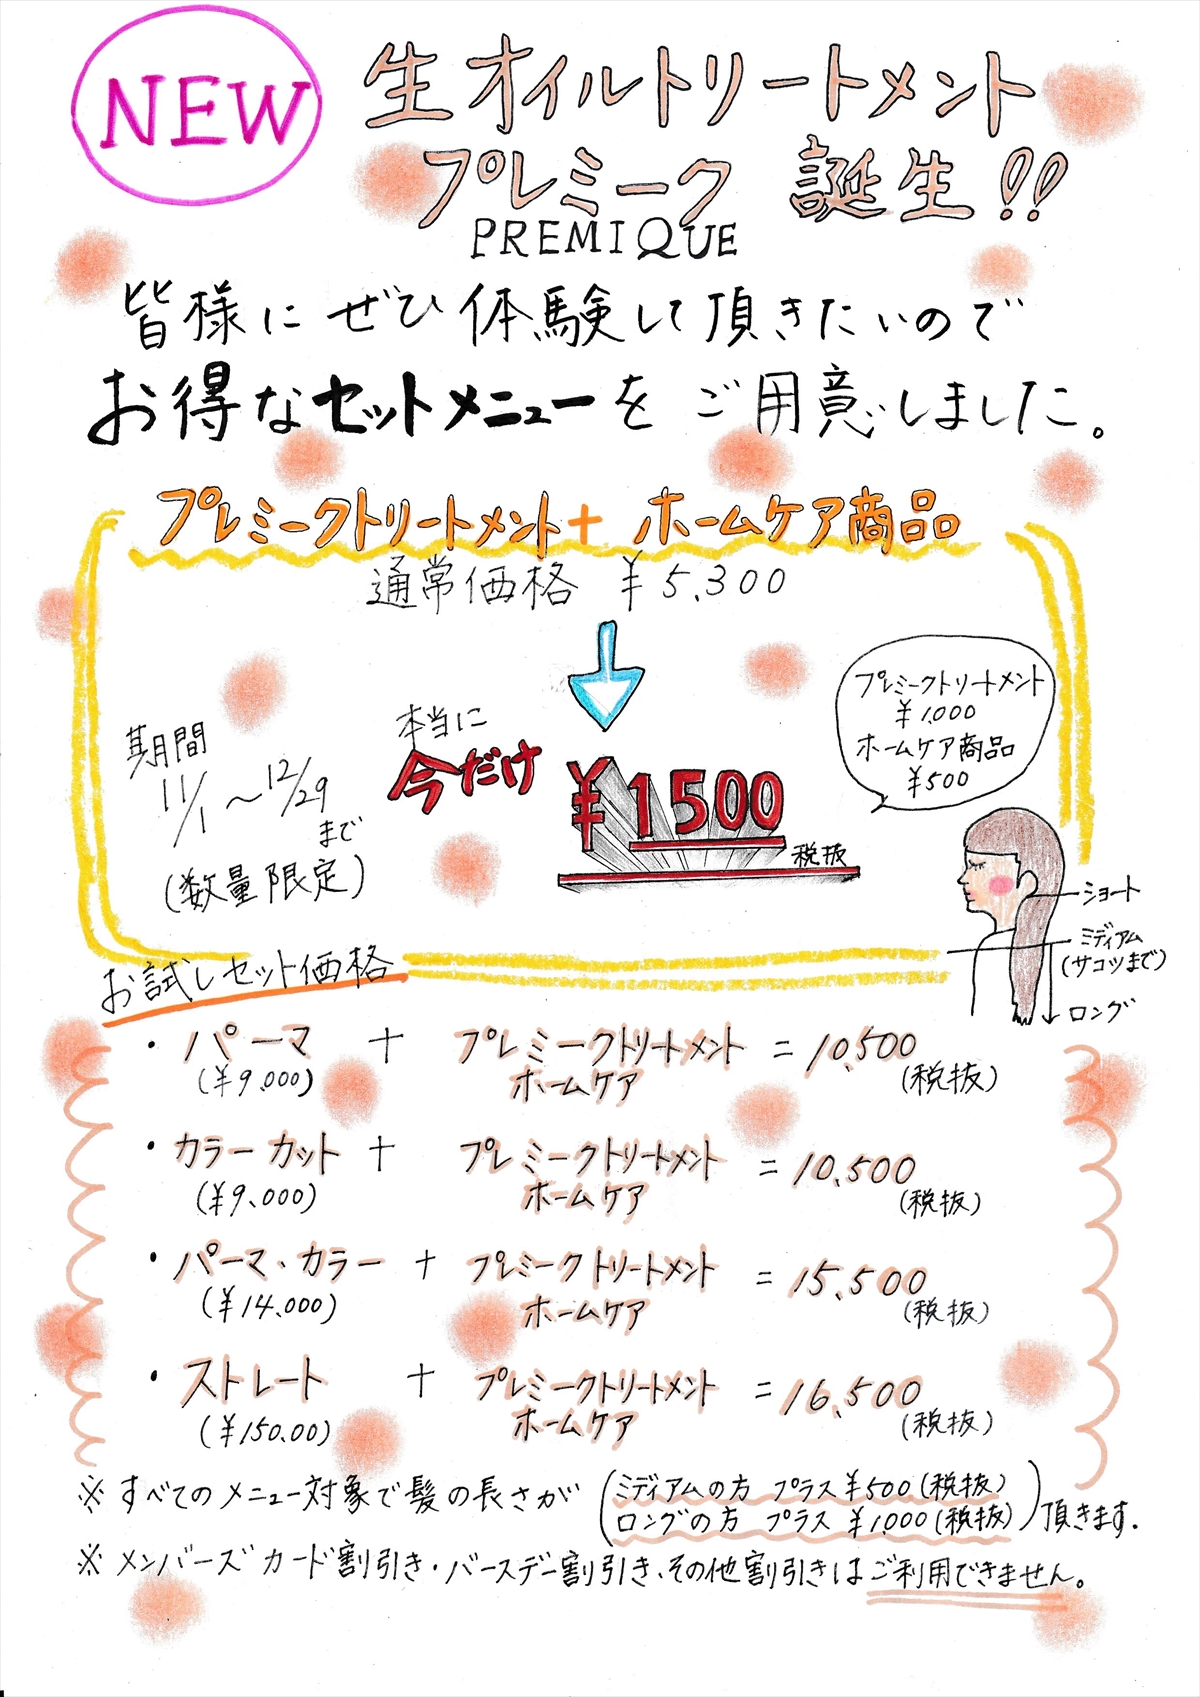 NEW
生オイルトリートメント
プレミーク 誕生!!
PREMIQUE
皆様にぜひ体験して頂きたいので
お得なセットメニューをご用意しました。
プレミークトリートメント+ ホームケア商品
通常価格 ¥5,300
プレミークトリートメント
¥1,000
ホームケア商品
¥500
期間
11/1～12/29
まで
(数量限定)
本当に
今だけ
¥1500
税抜
ショート
ミディアム
(サコツまで)
ロング
お試しセット価格
・パーマ + プレミークトリートメント = 10,500
(¥9,000) ホームケア (税抜)
・カラーカット + プレミークトリートメント = 10,500
(¥9,000) ホームケア (税抜)
・パーマ・カラー + プレミークトリートメント = 15,500
(¥14,000) ホームケア (税抜)
・ストレート + プレミークトリートメント = 16,500
(¥150.00) ホームケア (税抜)
※すべてのメニュー対象で髪の長さが(ミディアムの方 プラス¥500(税抜)
ロングの方 プラス ¥1,000(税抜))頂きます.
※メンバーズカード割引き・バースデー割引き、その他割引きはご利用できません。